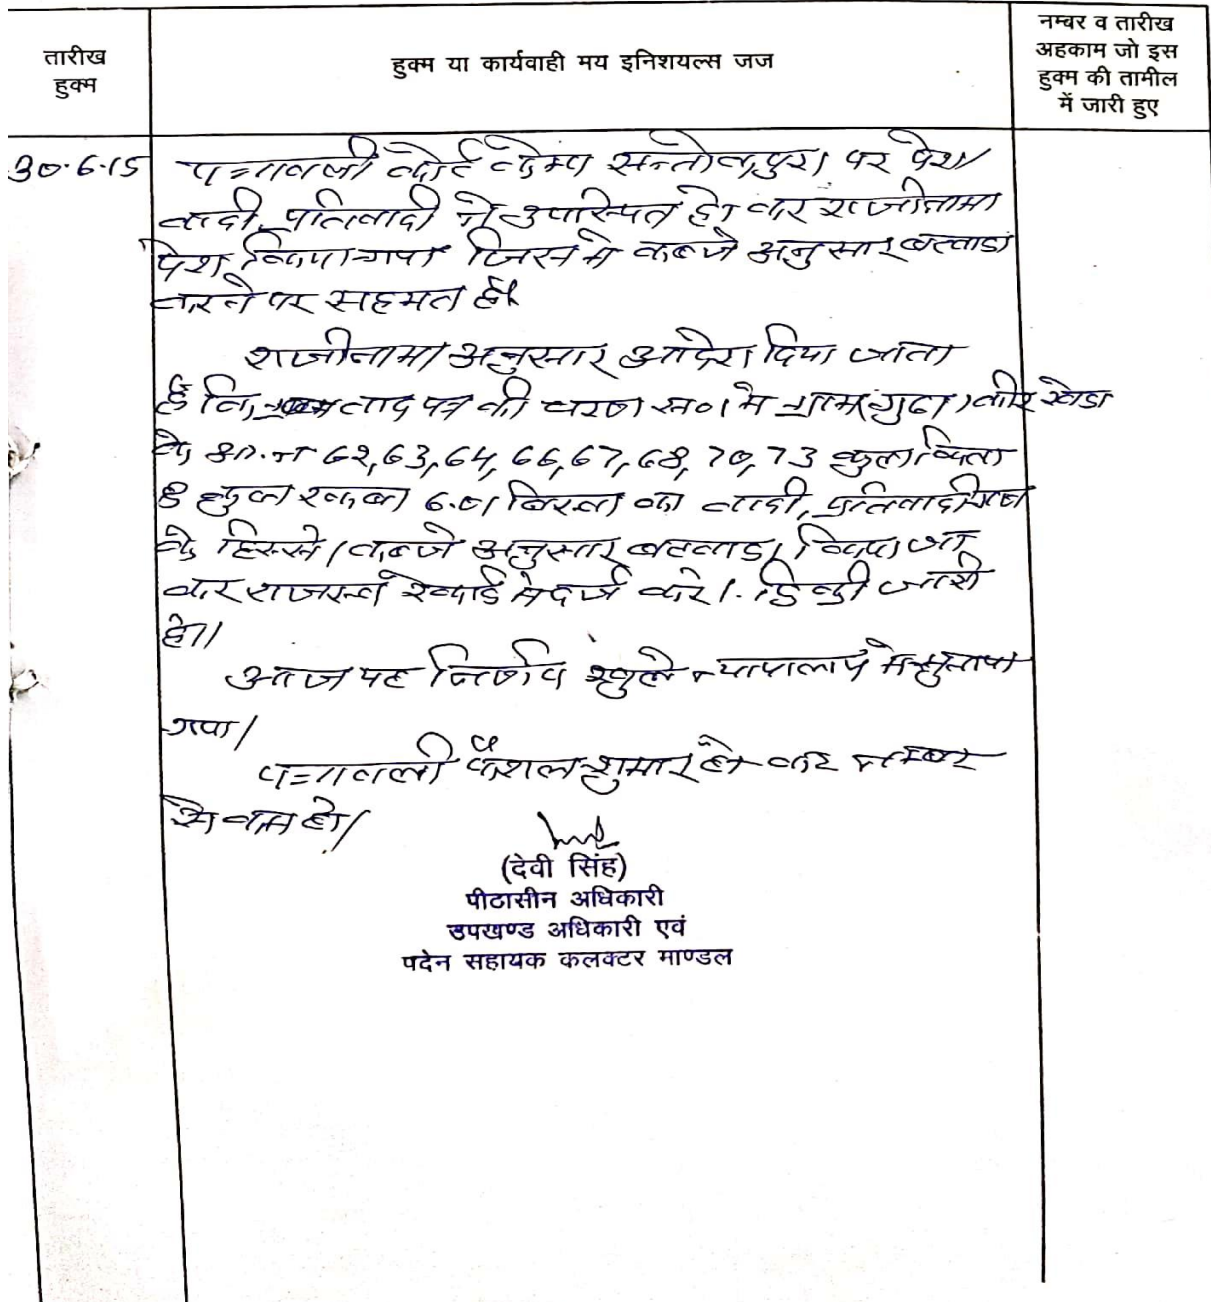 तारीख
हुक्म
हुक्म या कार्यवाही मय इनिशयल्स जज
नम्बर व तारीख
अहकाम जो इस
हुक्म की तामील
में जारी हुए
30.6.15
पत्रावली कोर्ट केम्प सन्तोकपुरा पर पेश।
वादी, प्रतिवादी ने उपस्थित हो कर राजीनामा
पेश किया गया जिस मे कब्जे अनुसार बटवाडा
करने पर सहमत है।
राजीनामा अनुसार आदेश दिया जाता
है कि वाद पत्र की चरण स० 1 मे ग्राम खेडा
के आ.न 62, 63, 64, 66, 67, 68, 70, 73 कुल किता
8 कुल रकबा 6.01 का वादी, प्रतिवादीगण
के हिस्से / कब्जे अनुसार बटवाडा किया जा
कर राजस्व रेकार्ड मे दर्ज करे। डिक्री जारी
हो।
आज यह निर्णय खुले न्यायालय मे सुनाया
गया।
पत्रावली फैशल शुमार हो कर नम्बर
से कम हो।
(देवी सिंह)
पीठासीन अधिकारी
उपखण्ड अधिकारी एवं
पदेन सहायक कलक्टर माण्डल